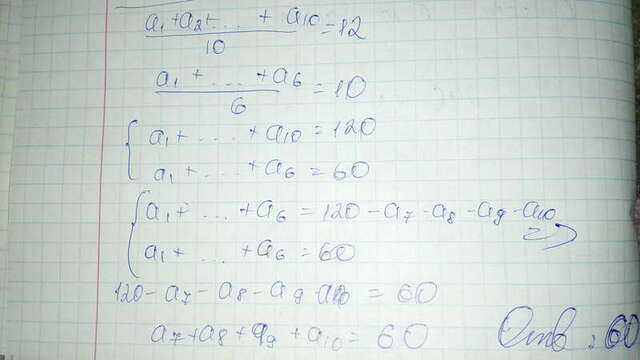 (a₁+a₂+...+a₁₀)/10=12
(a₁+...+a₆)/6=10
{a₁+...+a₁₀=120
a₁+...+a₆=60
{a₁+...+a₆=120-a₇-a₈-a₉-a₁₀ =>
a₁+...+a₆=60
120-a₇-a₈-a₉-a₁₀=60
a₇+a₈+a₉+a₁₀=60 Отв: 60